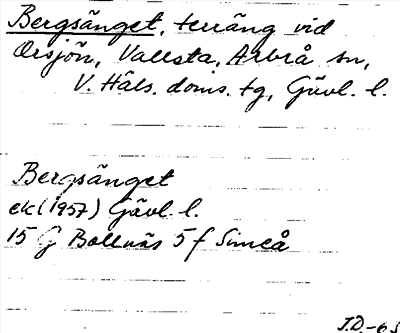 Bergsänget, terräng vid
Orsjön, Vallsta, Arbrå sn,
V. Häls. doms. tg, Gävl. l.
Bergsänget
ek (1957) Gävl. l.
15 G Bollnäs 5 f Simeå
J.D.-63